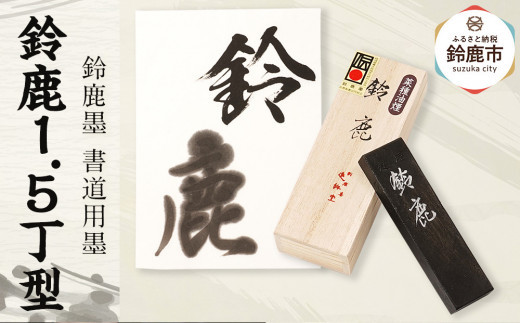 鈴鹿1.5丁型
鈴鹿墨 書道用墨
鈴鹿
菜種油煙
鈴鹿
鈴鹿
ふるさと納税
鈴鹿市
suzuka city